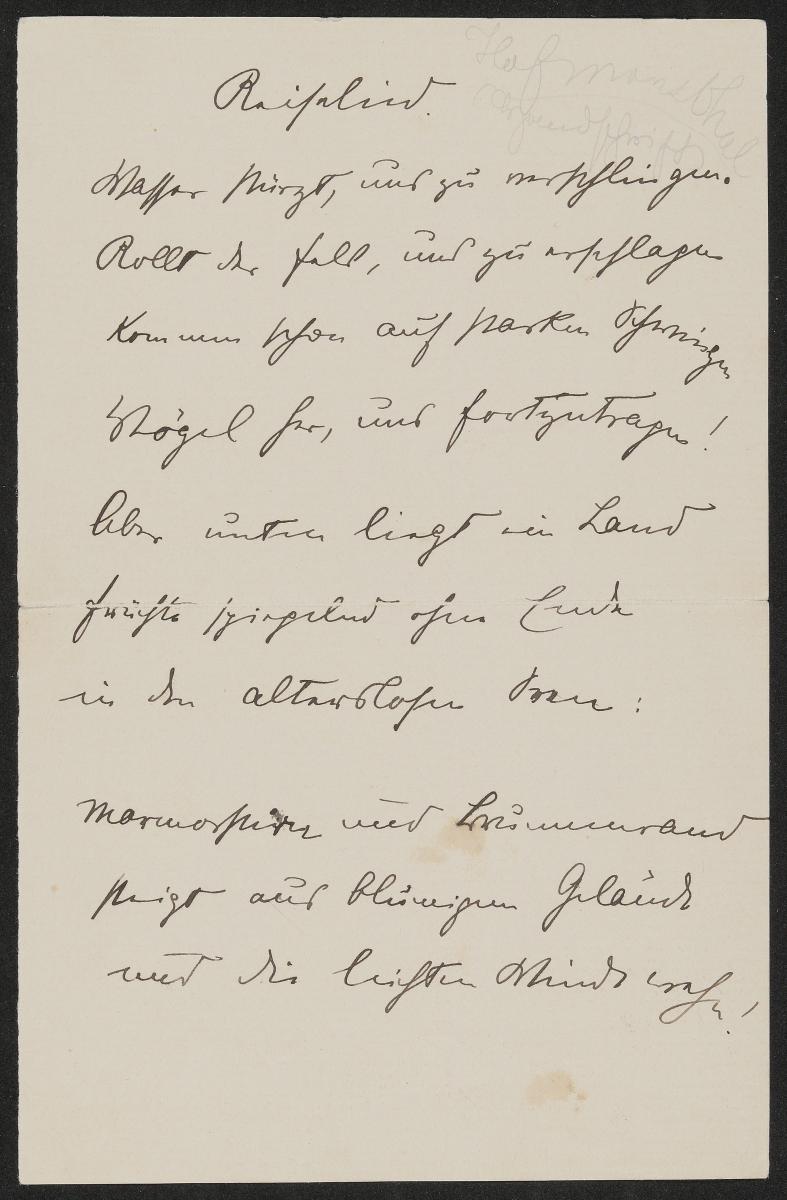 Hofmannsthal
Handschrift
Reiselied.
Wasser stürzt, uns zu verschlingen.
Rollt der Fels, uns zu erschlagen
Kommen schon auf starken Schwingen
Vögel her, uns fortzutragen!
Aber unten liegt ein Land
Früchte spiegelnd ohne Ende
in den alterslosen Seen:
Marmorstirn und Brunnenrand
steigt aus blumigem Gelände
und die leichten Winde wehn!